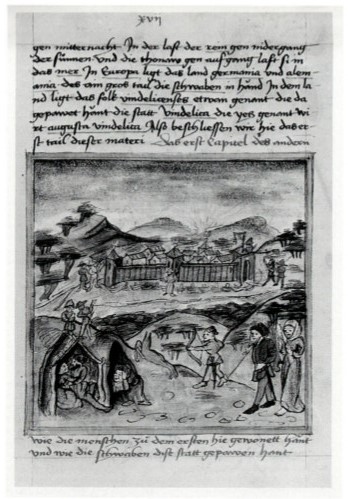 xvii
gen mitternacht In der last der rein gen nidergang
der sunnen und die thonaw gen aufgang last si in
das mer In Europa ligt das land germania und alem
ania des am gros tail die schwaben in hand In dem la
nd ligt das folk vindelicenses etwan genant die da
gepawet hant die statt vindelica die yetz genant wi
rt augusta vindelica Also beschliessen wir hie das er
st tail dieser materi Das erst Capitel des andern
wie die menschen zu dem ersten hie gewonett hant
und wie die schwaben dise statt gepawen hant